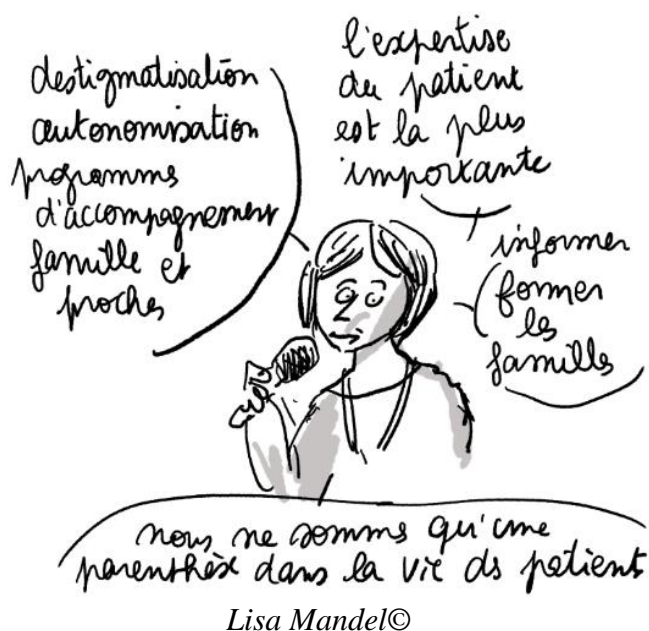 destigmatisation
autonomisation
programmes
d'accompagnement
famille et
proches
l'expertise
du patient
est la plus
importante
informer
former
les
familles
nous ne sommes qu'une
parenthèse dans la vie ds patient
Lisa Mandel©